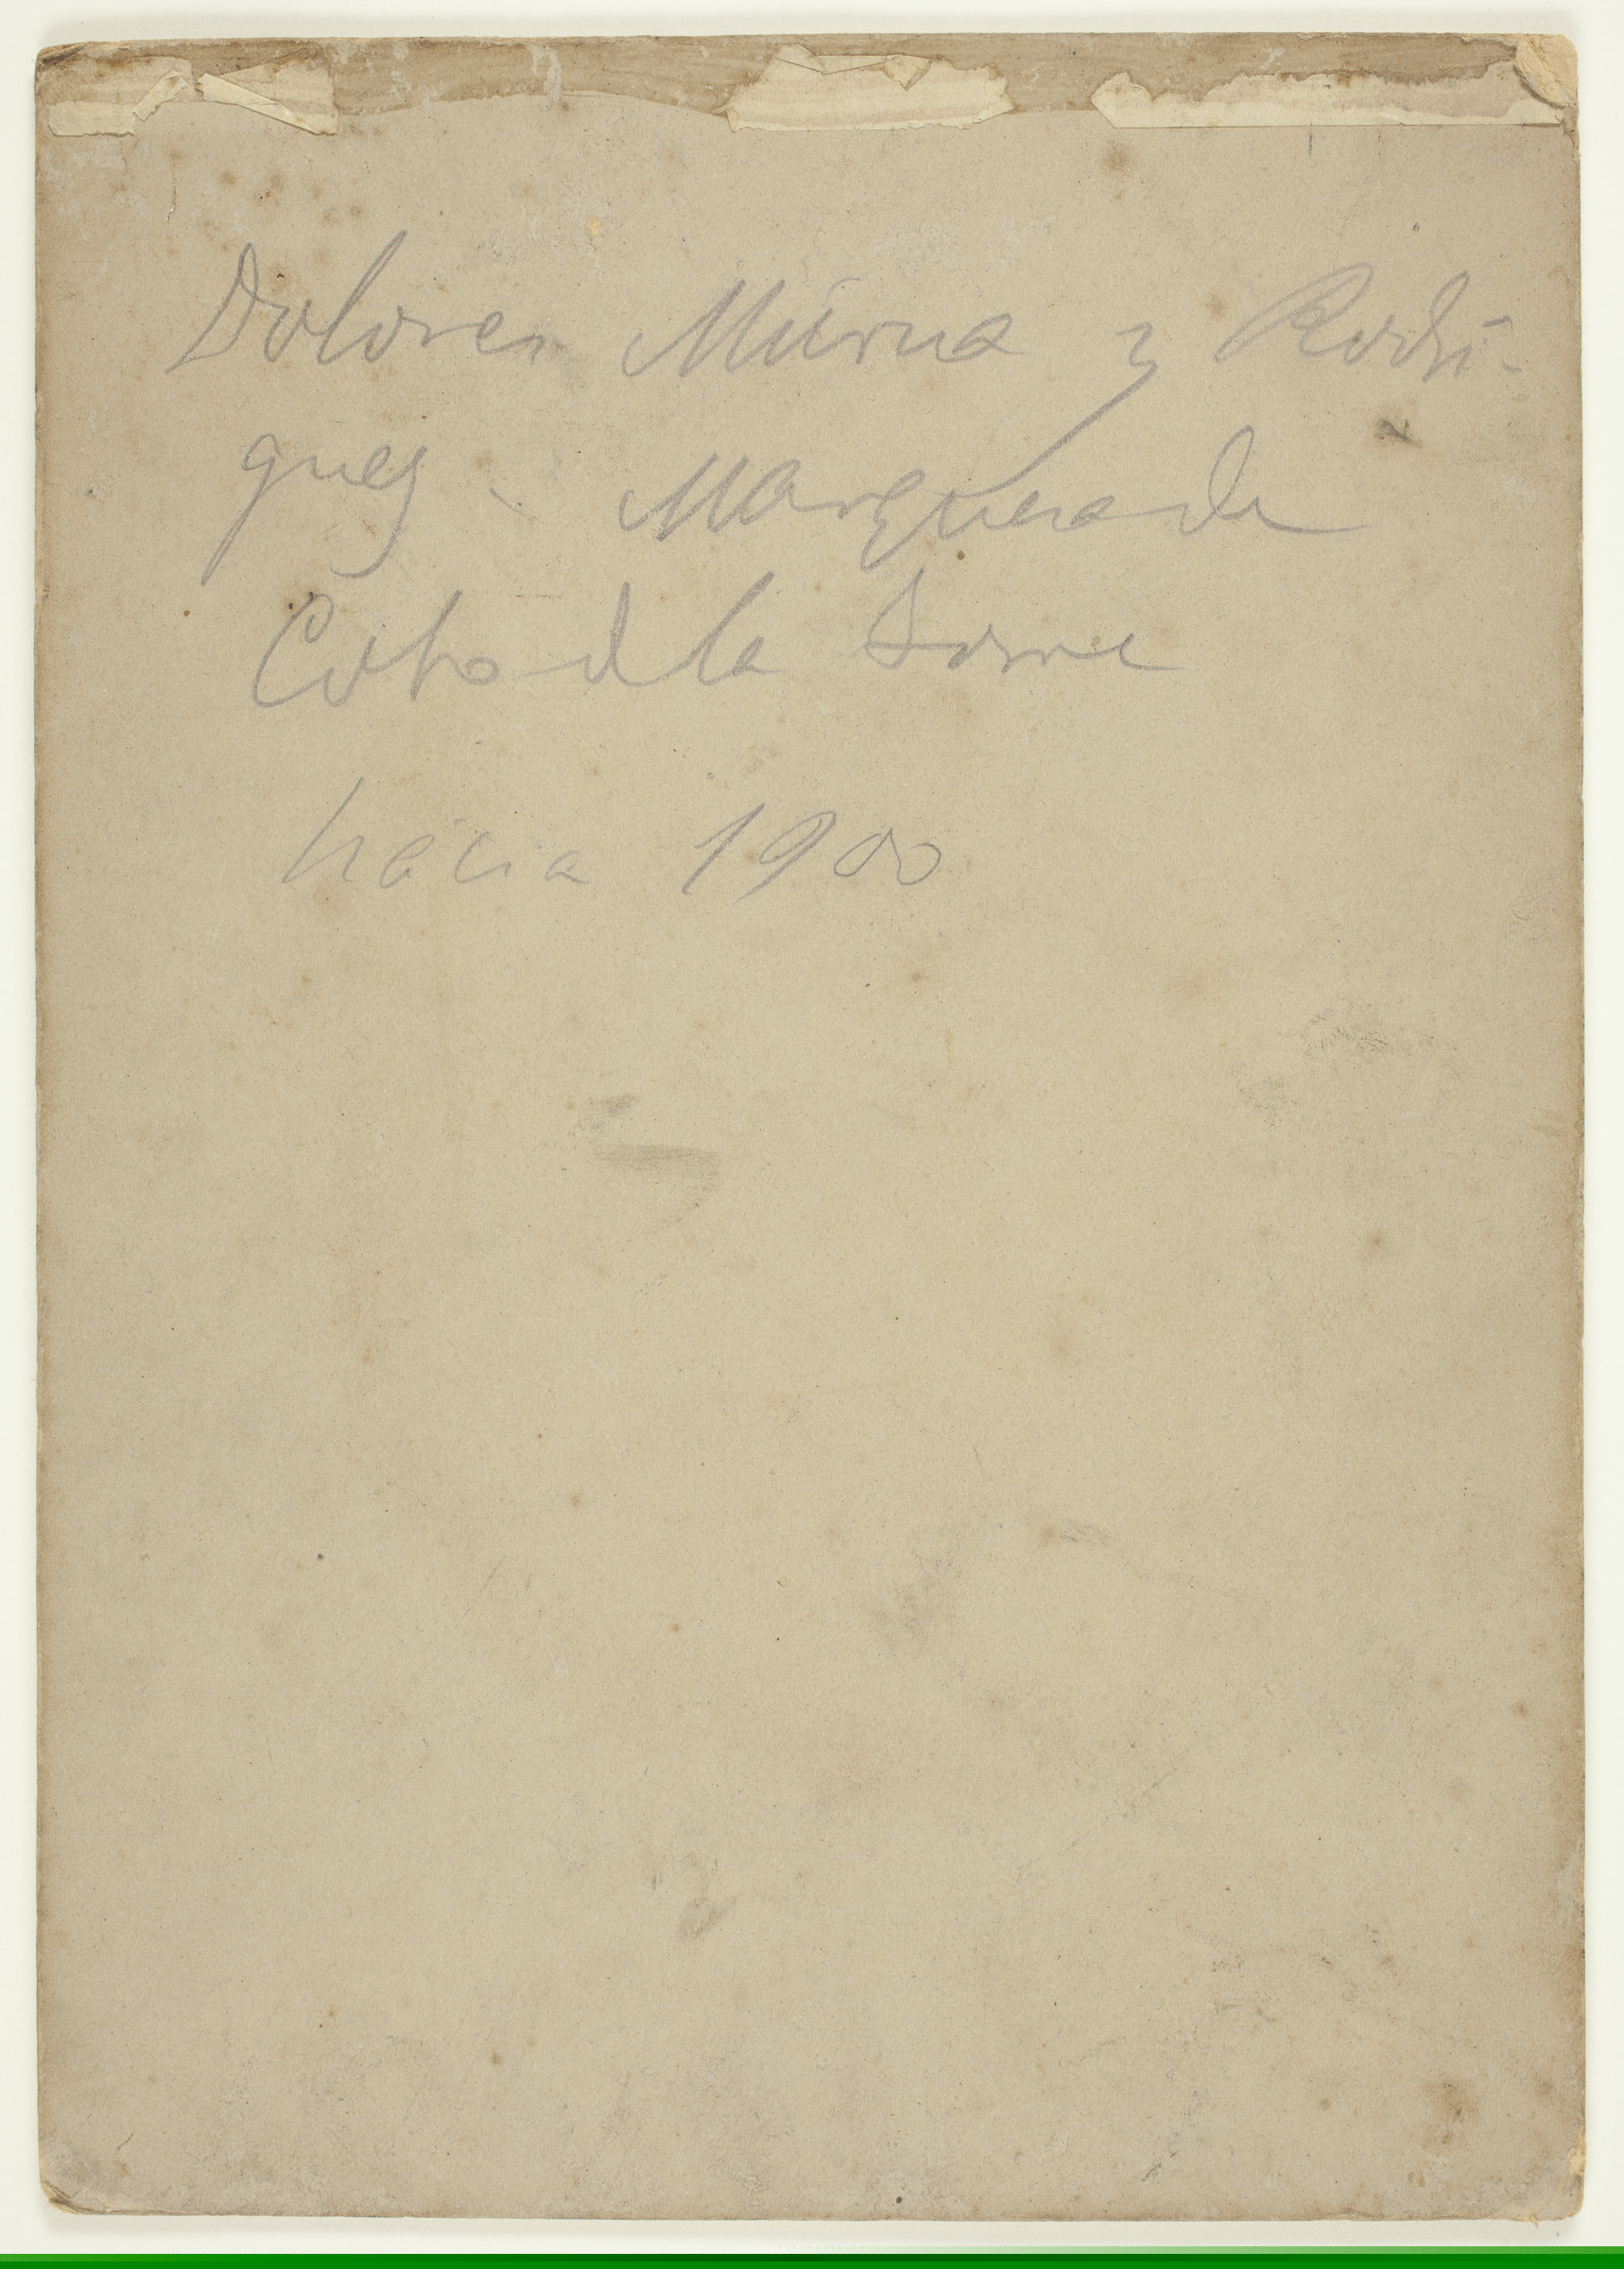 Dolores Múrua y Rodrí-
guez - Marquesa de
Coto de la Torre
hácia 1900